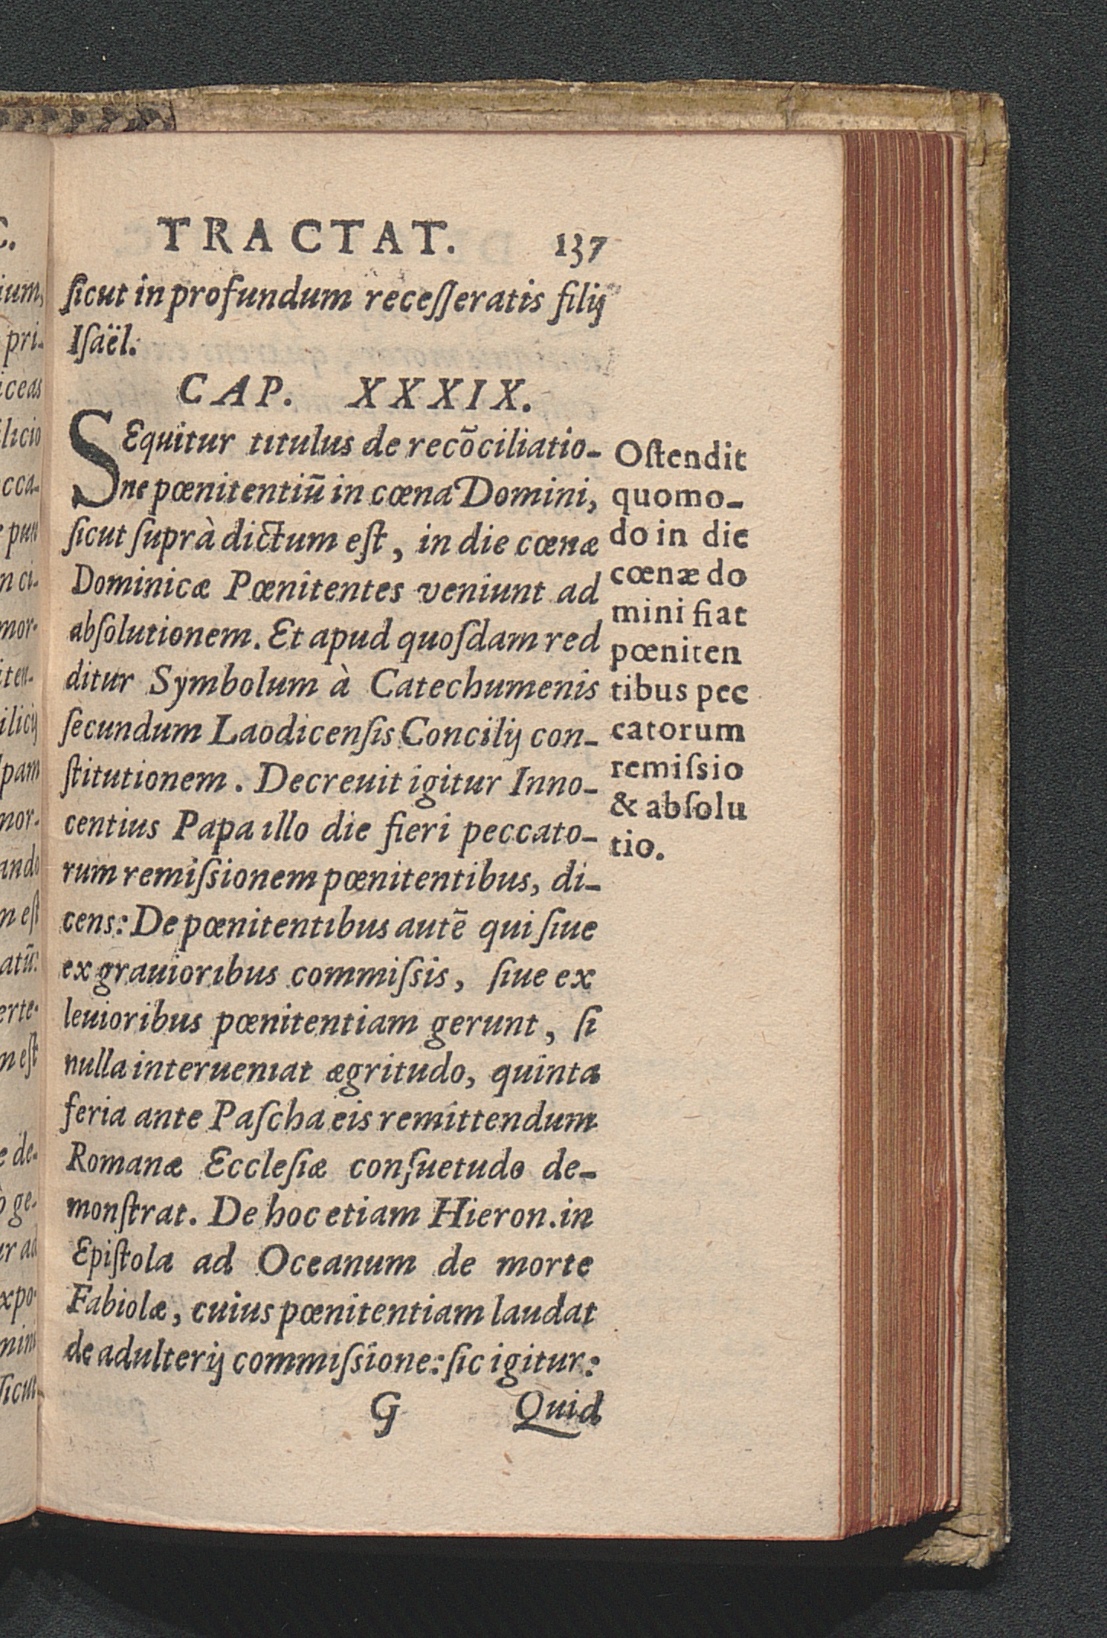 TRACTAT. 137
ſicut in profundum receſſeratis filij
Iſaël.
CAP. XXXIX.
SEquitur titulus de recõciliatio-
ne pœnitentiũ in cœna Domini,
ſicut ſuprà dictum eſt, in die cœnæ
Dominicæ Pœnitentes veniunt ad
abſolutionem. Et apud quoſdam red
ditur Symbolum à Catechumenis
ſecundum Laodicenſis Concilij con-
ſtitutionem. Decreuit igitur Inno-
centius Papa illo die fieri peccato-
rum remiſsionem pœnitentibus, di-
cens: De pœnitentibus autẽ qui ſiue
ex grauioribus commiſsis, ſiue ex
leuioribus pœnitentiam gerunt, ſi
nulla interueniat ægritudo, quinta
feria ante Paſcha eis remittendum
Romanæ Eccleſiæ conſuetudo de-
monſtrat. De hoc etiam Hieron. in
Epiſtola ad Oceanum de morte
Fabiolæ, cuius pœnitentiam laudat
de adulterij commiſsione: ſic igitur:
G Quid
Oſtendit
quomo-
do in die
cœnæ do
mini fiat
pœniten
tibus pec
catorum
remiſsio
& abſolu
tio.